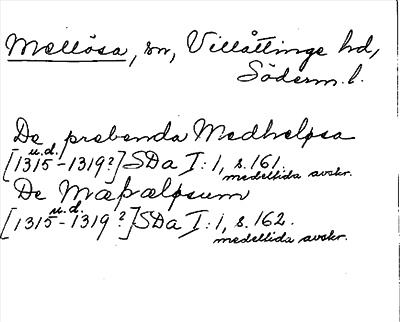 Mellösa, sn, Villåttinge hd,
Söderm. l.
De prebenda Medheløsa
u.d.
[1315-1319?] SDa I:1, s. 161.
medeltida avskr.
De Mæþæløsum
u.d.
[1315-1319?] SDa I:1, s. 162.
medeltida avskr.